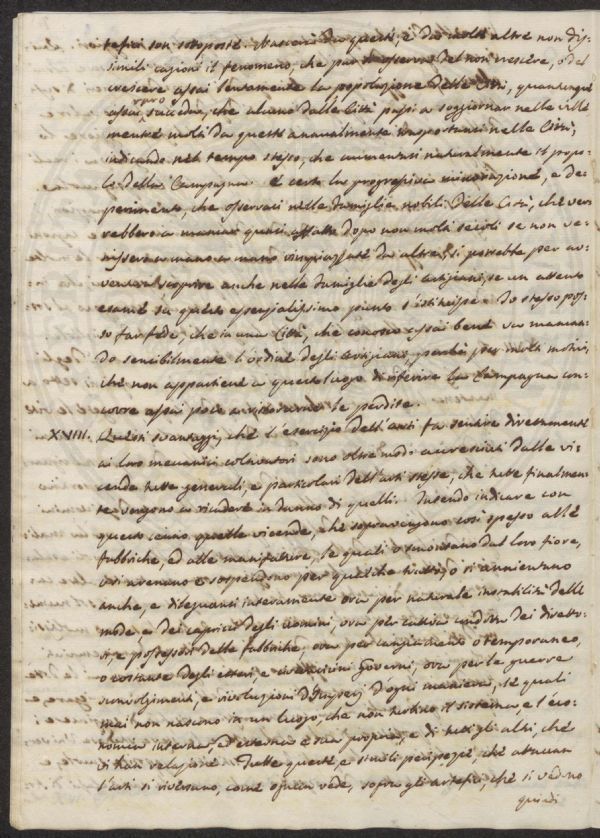 tefici son sottoposte. Nascerà da questi, e da molte altre non dis-
simili cagioni il fenomeno, che può osservarsi del non crescere, o del
crescere assai lentamente la popolazione delle Città, quantunque
assai raro succeda, che alcuno dalle Città passi a soggiornar nelle ville
mentre molti da queste annualmente nelle Città,
indicando nel tempo stesso, che aumentasi naturalmente il popo-
lo della Campagna. È certo la progressiva minorazione, e de-
perimento, che osservasi nelle famiglie nobili delle Città, che ver-
rebbero a mancar quasi affatto dopo non molti secoli se non ve-
nissero a mano a mano rimpiazzate da altre, si potrebbe per av-
ventura scoprire anche nelle famiglie degli Artigiani, se un attento
esame su questo essenzialissimo punto s'istituisse. Io stesso pos-
so far fede, che in una Città, che conosco assai bene va mancan-
do sensibilmente l'ordine degli Artigiani, perchè per molti motivi,
che non appartiene a questo luogo di riferire la Campagna con-
corre assai poco a ristorarne le perdite.
XVIII. Questi svantaggi, che l'esercizio dell'arti fa sentire direttamente
ai loro meccanici coltivatori sono oltre modo accresciuti dalle vi-
cende tutte generali, e particolari dell'arti stesse, che tutte finalmen-
te vengono a ricadere in danno di quelli. Intendo indicare con
questo cenno quelle vicende, che sopravvengono così spesso alle
fabbriche, ed alle manifatture, le quali o smontano dal loro fiore,
o si arrenano e sospendono per qualche tratto, o si annientano
anche, e dileguansi interamente ora per naturale instabilità delle
mode e dei capricci degli uomini, ora per cattiva condotta dei diretto-
ri, e possessori delle fabbriche, ora per cangiamento o temporaneo,
o costante degli esteri, e Governi, ora per le guerre
sconvolgimenti, e rivoluzioni d'Imperj d'ogni maniera, le quali
mai non nascono in un luogo, che non turbino il sistema, e l'eco-
nomia interna, ed esterna e sua propria, e di tutti gli altri, che
vi han relazione. Tutte queste, e simili peripezie, che attaccan
l'arti si riversano, come ognun vede, sopra gli artefici, che si vedono
quindi